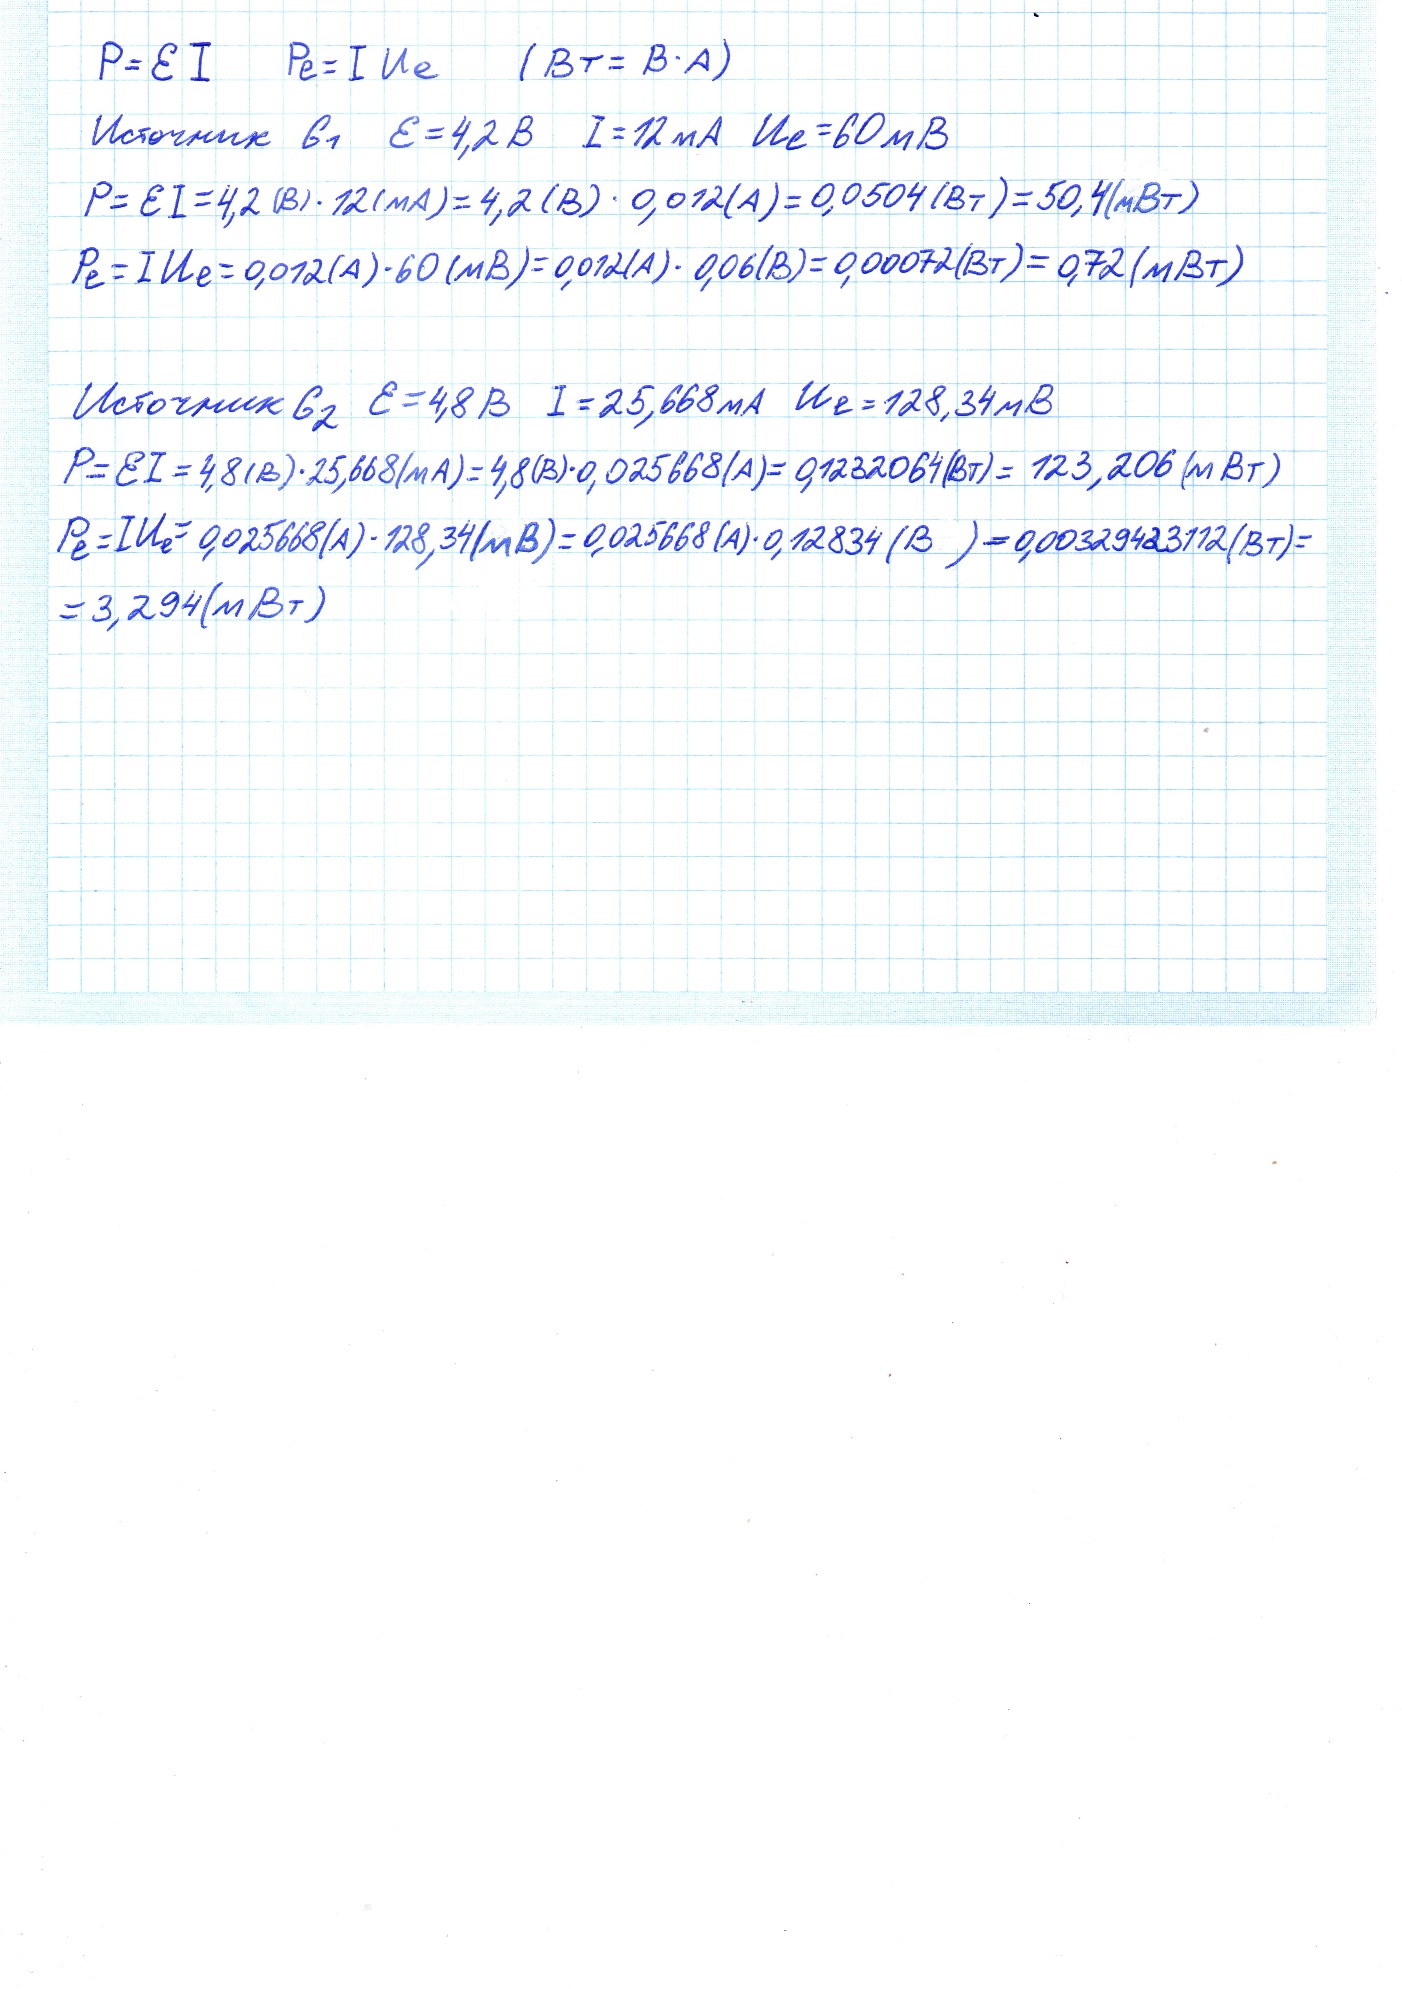 P=ℰI Pe=IUe (Вт=В·А)
Источник G1 ℰ=4,2В I=12мА Ue=60мВ
P=ℰI=4,2(В)·12(мА)=4,2(В)·0,012(А)=0,0504(Вт)=50,4(мВт)
Pe=IUe=0,012(А)·60(мВ)=0,012(А)·0,06(В)=0,00072(Вт)=0,72(мВт)
Источник G2 ℰ=4,8В I=25,668мА Ue=128,34мВ
P=ℰI=4,8(В)·25,668(мА)=4,8(В)·0,025668(А)=0,1232064(Вт)=123,206(мВт)
Pe=IUe=0,025668(А)·128,34(мВ)=0,025668(А)·0,12834(В)=0,00329423112(Вт)=
=3,294(мВт)